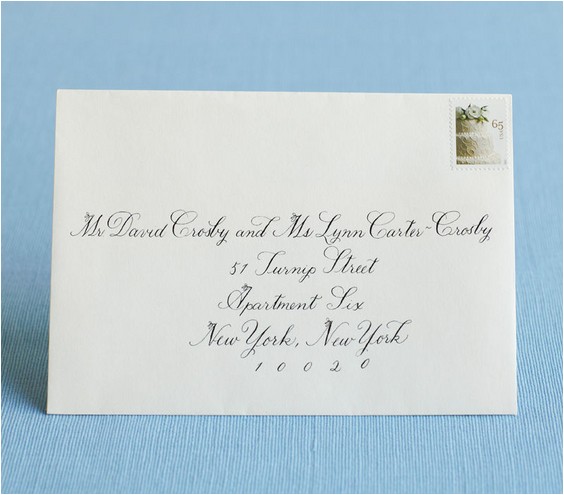 65
Mr David Crosby and Ms Lynn Carter~Crosby
51 Turnip Street
Apartment Six
New York, New York
10020